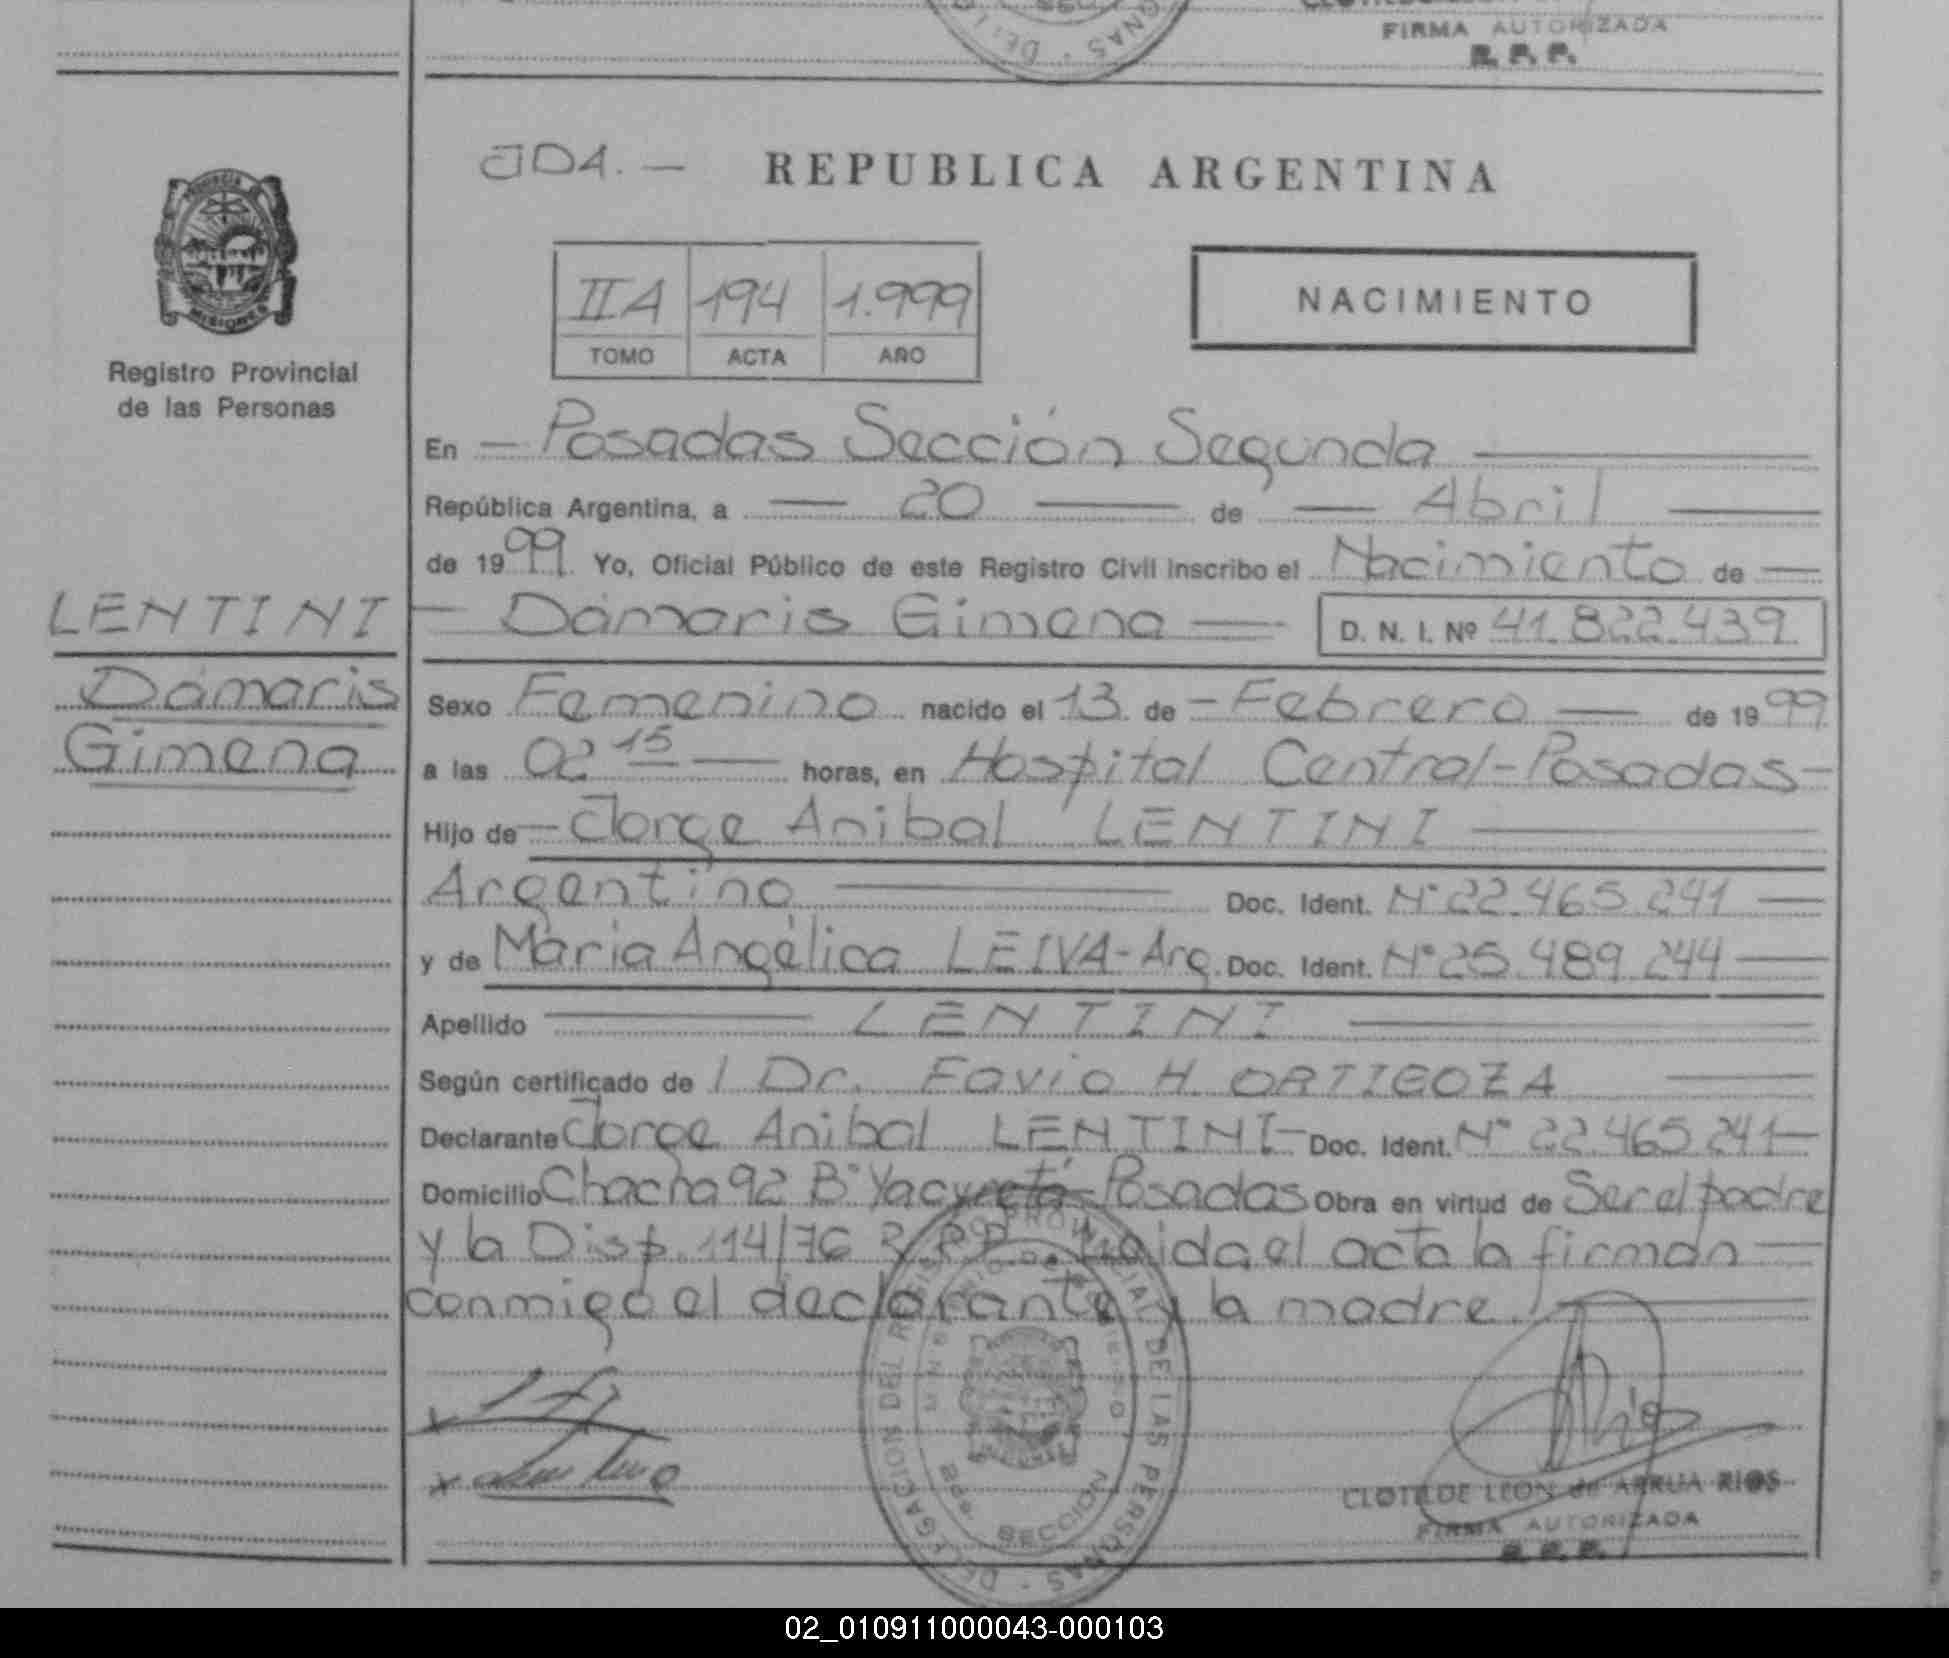 FIRMA AUTORIZADA
R. P. P.
JDA. — REPUBLICA ARGENTINA
PROVINCIA DE
MISIONES
Registro Provincial
de las Personas
IIA 194 1.999
TOMO ACTA AÑO
NACIMIENTO
En — Posadas Sección Segunda —
República Argentina, a — 20 — de — Abril —
de 1999. Yo, Oficial Público de este Registro Civil inscribo el Nacimiento de —
LENTINI
Dámaris
Gimena
— Dámaris Gimena — D. N. I. Nº 41.822.439
Sexo Femenino nacido el 13 de — Febrero — de 1999
a las 02 15 — horas, en Hospital Central-Posadas-
Hijo de — Jorge Anibal LENTINI —
Argentino — Doc. Ident. N° 22.465.241 —
y de Maria Angélica LEIVA-Arg. Doc. Ident. N° 25.489.244 —
Apellido — LENTINI —
Según certificado de l Dr. Favio H. ORTIGOZA —
Declarante Jorge Anibal LENTINI- Doc. Ident. N° 22.465.241-
Domicilio Chacra 92 B° Yacyretá-Posadas Obra en virtud de Ser el padre
y la Disp. 114/76 R.P.P. Leida el acta la firman —
conmigo el declarante y la madre. —
DELEGACION DEL REGISTRO PROVINCIAL DE LAS PERSONAS
SECCION
CLOTILDE LEON de ARRUA RIOS
FIRMA AUTORIZADA
R. P. P.
02_010911000043-000103